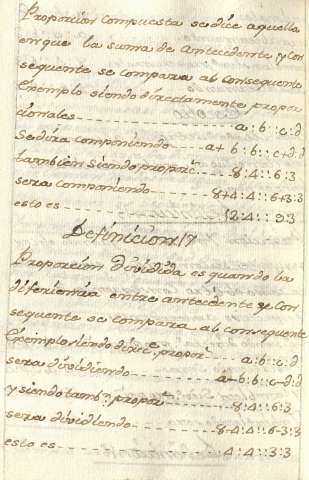 Proporcion Compuesta se dice aquella
en que la suma de antecedente, y con
sequente se compara al consequente
Exemplo siendo directamente propor
cionales - - - - - - - - a : b :: c : d
Se dira componiendo - - - - a + b : b :: c + d : d
tambien siendo proporc.ˢ - - - - 8 : 4 :: 6 : 3
sera componiendo - - - - 8+4 : 4 :: 6+3 : 3
esto es - - - - - - - - 12 : 4 :: 9 : 3
Definicion 17
Proporcion dividida es quando la
diferiencia entre antecedente y Con
sequente se compara al consequente
Exemplo siendo direc.ᵉ propor.ˢ - - - - a : b :: c : d
sera dividiendo - - - - a - b : b :: c - d : d
y siendo tamb.ⁿ propor.ˢ - - - - 8 : 4 :: 6 : 3
sera dividiendo - - - - 8-4 : 4 :: 6-3 : 3
esto es - - - - - - - - 4 : 4 :: 3 : 3